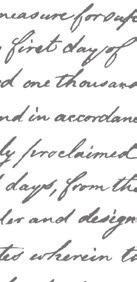 measure for supp
first day of
d one thousand
nd in accordanc
ly proclaimed
days, from the
der and design
tes wherein to